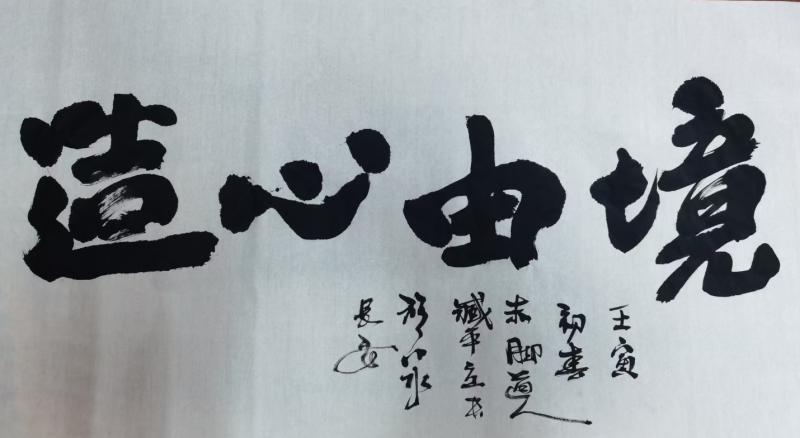 境由心造
壬寅
初春
赤脚道人
臧平立书
於
长安